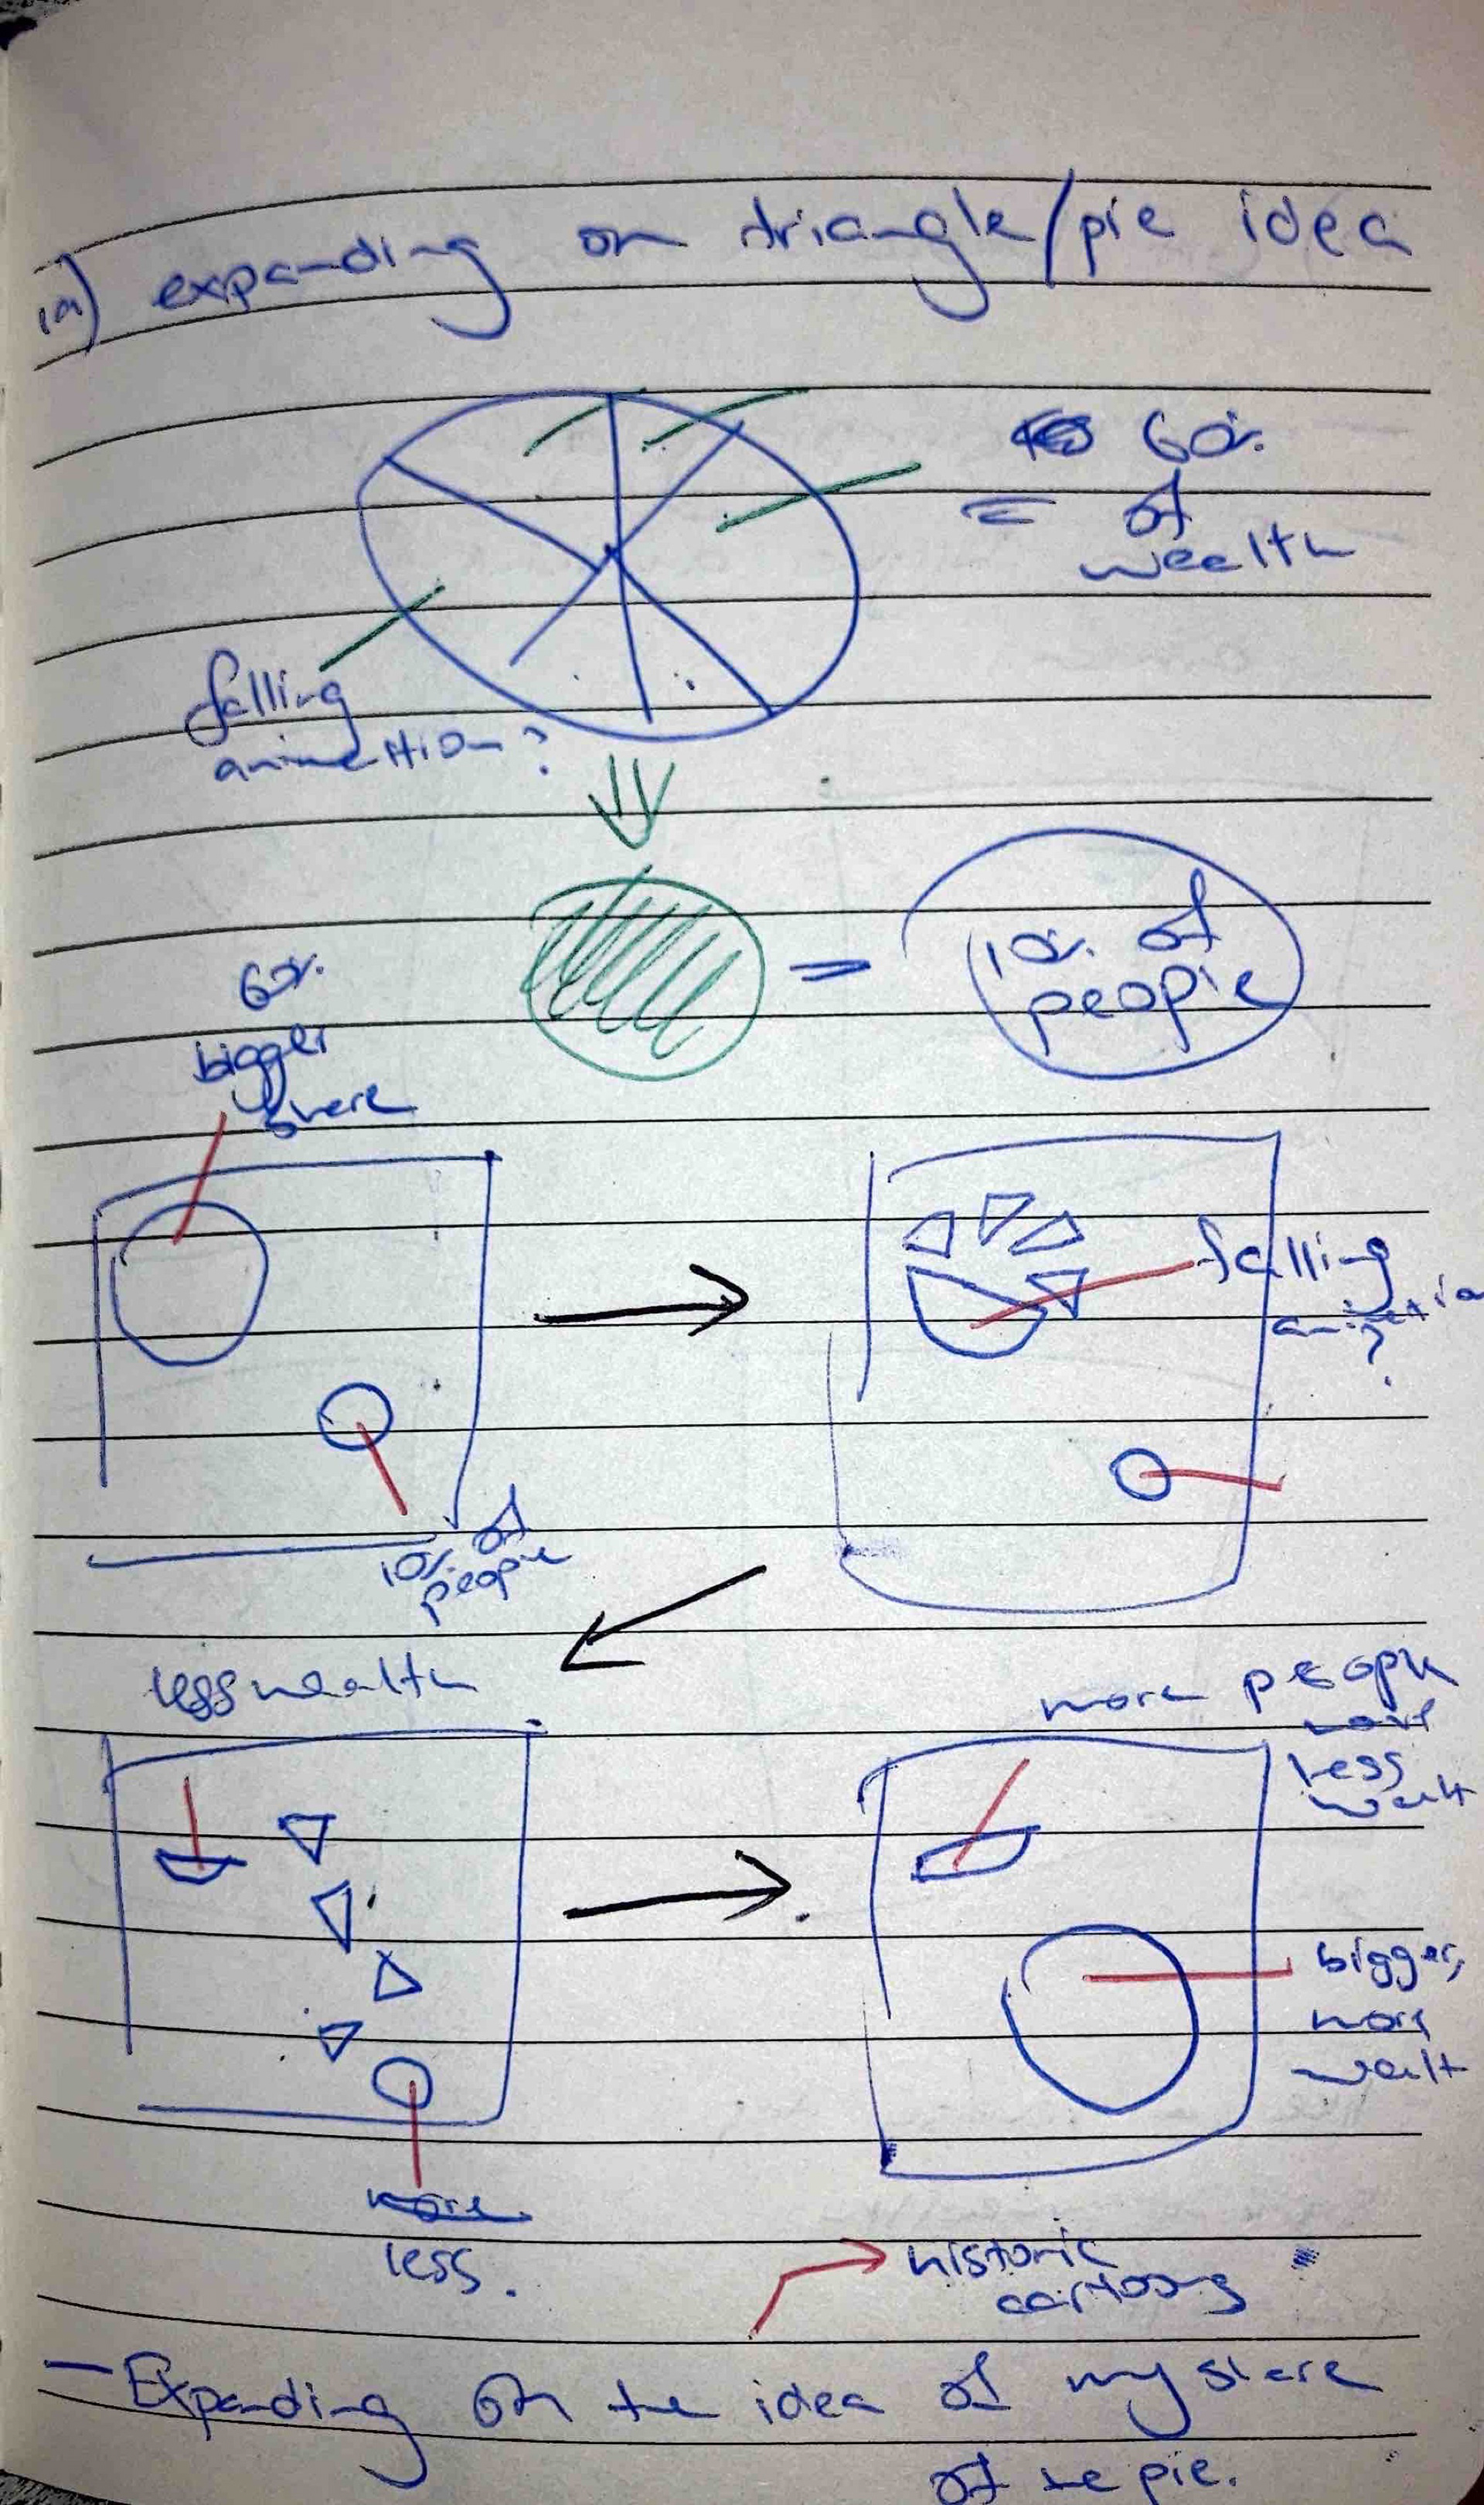 1a) expanding on triangle/pie idea
60%
= of
wealth
falling
animation?
= 10% of
people
60%
bigger
share
falling
animation
?
10% of
people
less wealth
more people
have
less
wealt
bigger,
more
wealt
more
less.
historic
cartoons
- Expanding on the idea of my share
of the pie.